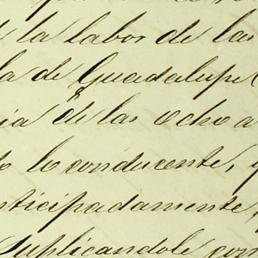 la labor de las
la de Guadalupe
ia de las ocho a
lo conducente, y
nticipadamente,
Suplicandole com